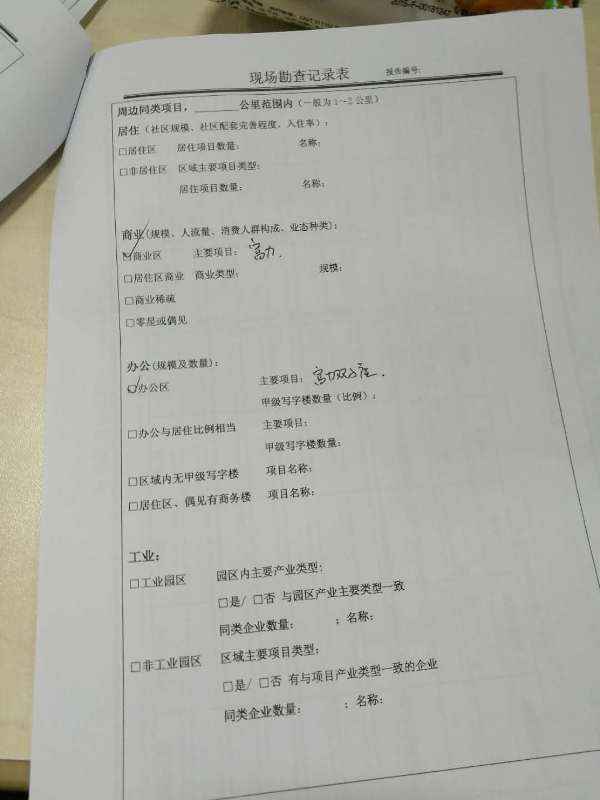 现场勘查记录表
报告编号:
周边同类项目，______公里范围内（一般为1～2公里）
居住（社区规模、社区配套完善程度、入住率）：
□居住区 居住项目数量： 名称：
□非居住区 区域主要项目类型：
居住项目数量： 名称：
商业(规模、人流量、消费人群构成、业态种类)：
☑商业区 主要项目：富力.
□居住区商业 商业类型： 规模：
□商业稀疏
□零星或偶见
办公(规模及数量)：
☑办公区 主要项目：富力双子座.
甲级写字楼数量（比例）：
□办公与居住比例相当 主要项目：
甲级写字楼数量：
□区域内无甲级写字楼 项目名称：
□居住区、偶见有商务楼 项目名称：
工业：
□工业园区 园区内主要产业类型：
□是/ □否 与园区产业主要类型一致
同类企业数量： ；名称：
□非工业园区 区域主要项目类型：
□是/ □否 有与项目产业类型一致的企业
同类企业数量： ；名称：